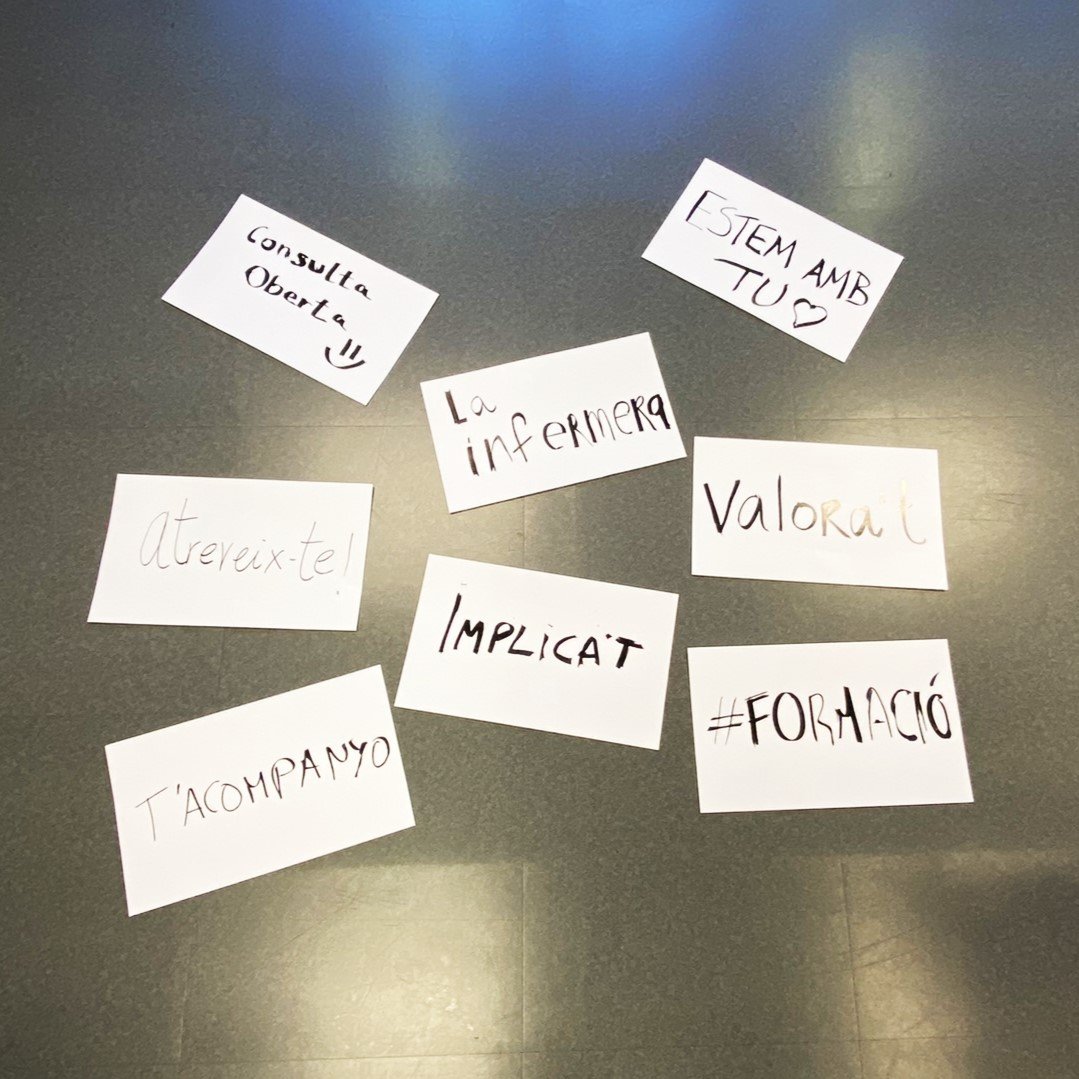 Consulta
Oberta
ESTEM AMB
TU ♡
La
infermera
Valora't
Atreveix-te!
IMPLICA'T
#FORMACIÓ
T'ACOMPANYO